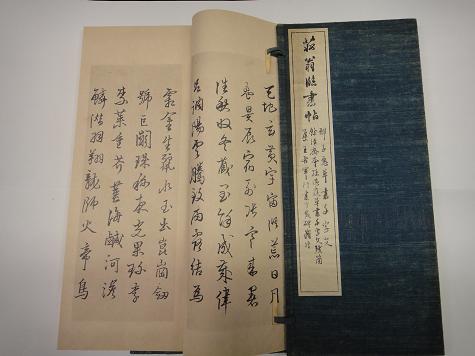 莊翁臨書帖
草書千字文
天地玄黄宇宙洪荒日月
盈昃辰宿列張寒来暑
往秋收冬蔵閏餘成歳律
呂調陽雲騰致雨露結為
霜金生麗水玉出崑崗劔
號巨闕珠稱夜光果珍李
柰菜重芥薑海鹹河淡
鱗潜羽翔龍師火帝鳥